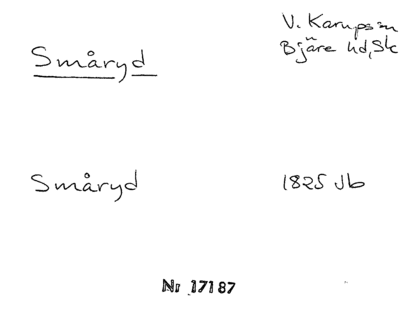 Småryd
V. Karupssn
Bjäre hd, Sk
Småryd
1825 Jb
Nr 17187